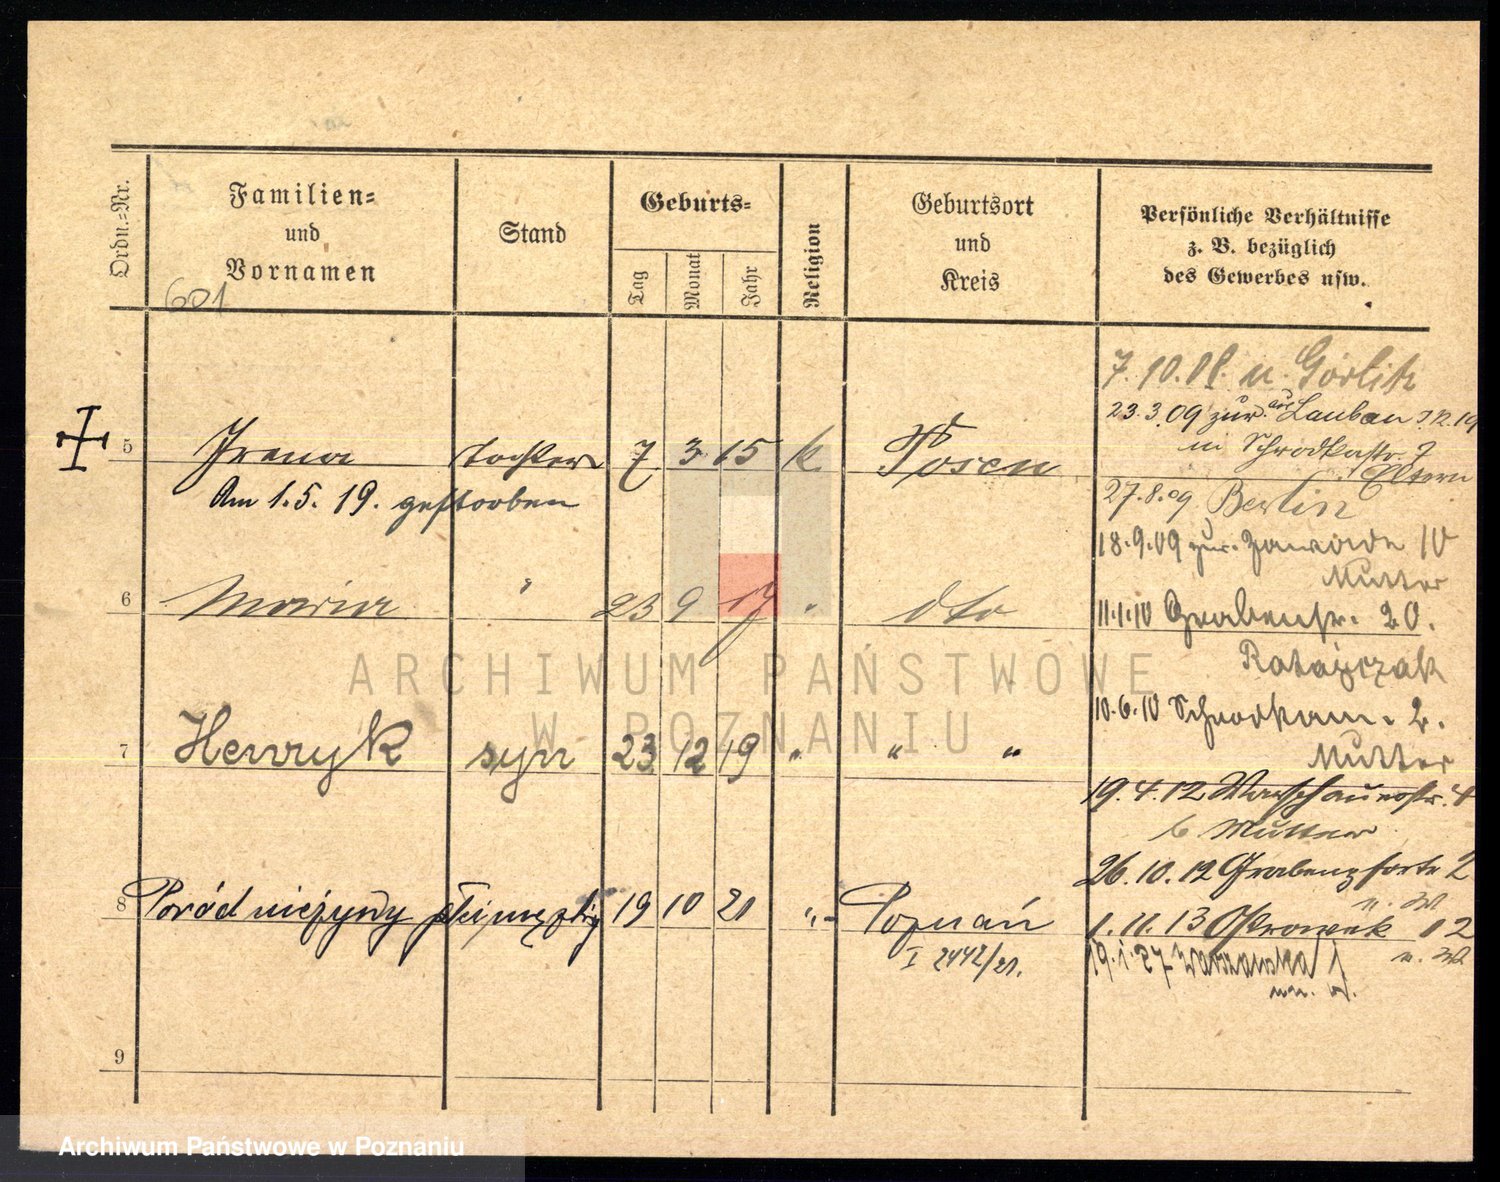 Ordn.-Nr.
Familien-
und
Vornamen
Stand
Geburts-
Tag
Monat
Jahr
Religion
Geburtsort
und
Kreis
Persönliche Verhältnisse
z. B. bezüglich
des Gewerbes usw.
601
5 Irena Tochter 7 3 15 k Posen
Am 1.5.19. gestorben
6 Maria " 23 9 19 " dto
7 Henryk syn 23 12 19 " " "
8 Poród nieżywy płci męzkiej 19 10 21 "- Poznań
I 2442/21.
9
7.10.08. n. Görlitz
23.3.09 zur. aus Lauban
Eltern
27.8.09 Berlin
18.9.09 zur. Zawade 10
Mutter
11.1.10 Grabenstr. 20.
Ratajczak
10.6.10 2.
Mutter
19.4.12 Warschauerstr. 4
b Mutter
26.10.12 Grabenpforte 2
1.11.13 Ostrowek 12
19.1.27 Warszawska
ARCHIWUM PAŃSTWOWE
W POZNANIU
Archiwum Państwowe w Poznaniu